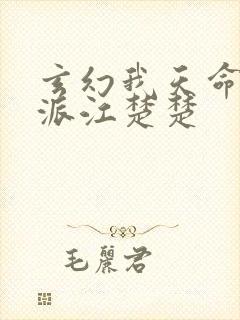 玄幻我天命
派江楚楚
毛丽君